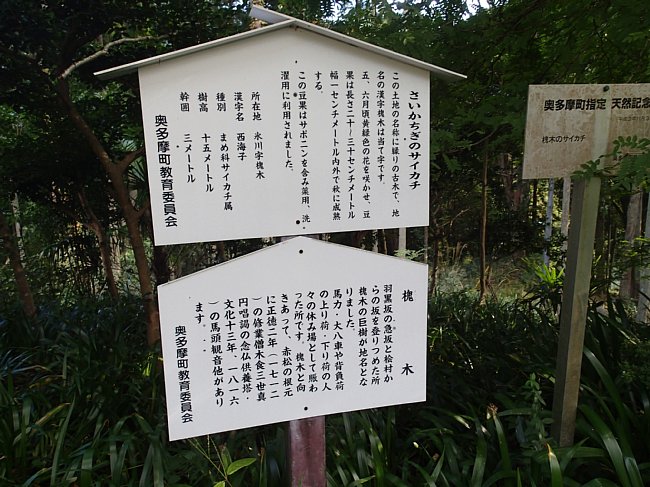 さいかちぎのサイカチ
この土地の名称に縁りの古木で、地
名の漢字槐木は当て字です。
五、六月頃黄緑色の花を咲かせ、豆
果は長さ二十〜三十センチメートル
幅一センチメートル内外で秋に成熟
する。
この豆果はサポニンを含み薬用、洗
濯用に利用されました。
所在地 氷川字槐木
漢字名 西海子
種別 まめ科サイカチ属
樹高 十五メートル
幹囲 三メートル
奥多摩町教育委員会
槐木
羽黒坂の急坂と桧村か
らの坂を登りつめた所
槐木の巨樹が地名とな
りました。
馬力・大八車や背負荷
の上り荷・下り荷の人
々の休み場として賑わ
った所です。槐木と向
きあって、赤松の根元
に正徳二年(一七一二
)の修業僧木食三世真
円唱謁の念仏供養塔・
文化十三年、一八一六
)の馬頭観音他があり
ます。
奥多摩町教育委員会
奥多摩町指定 天然記念
槐木のサイカチ